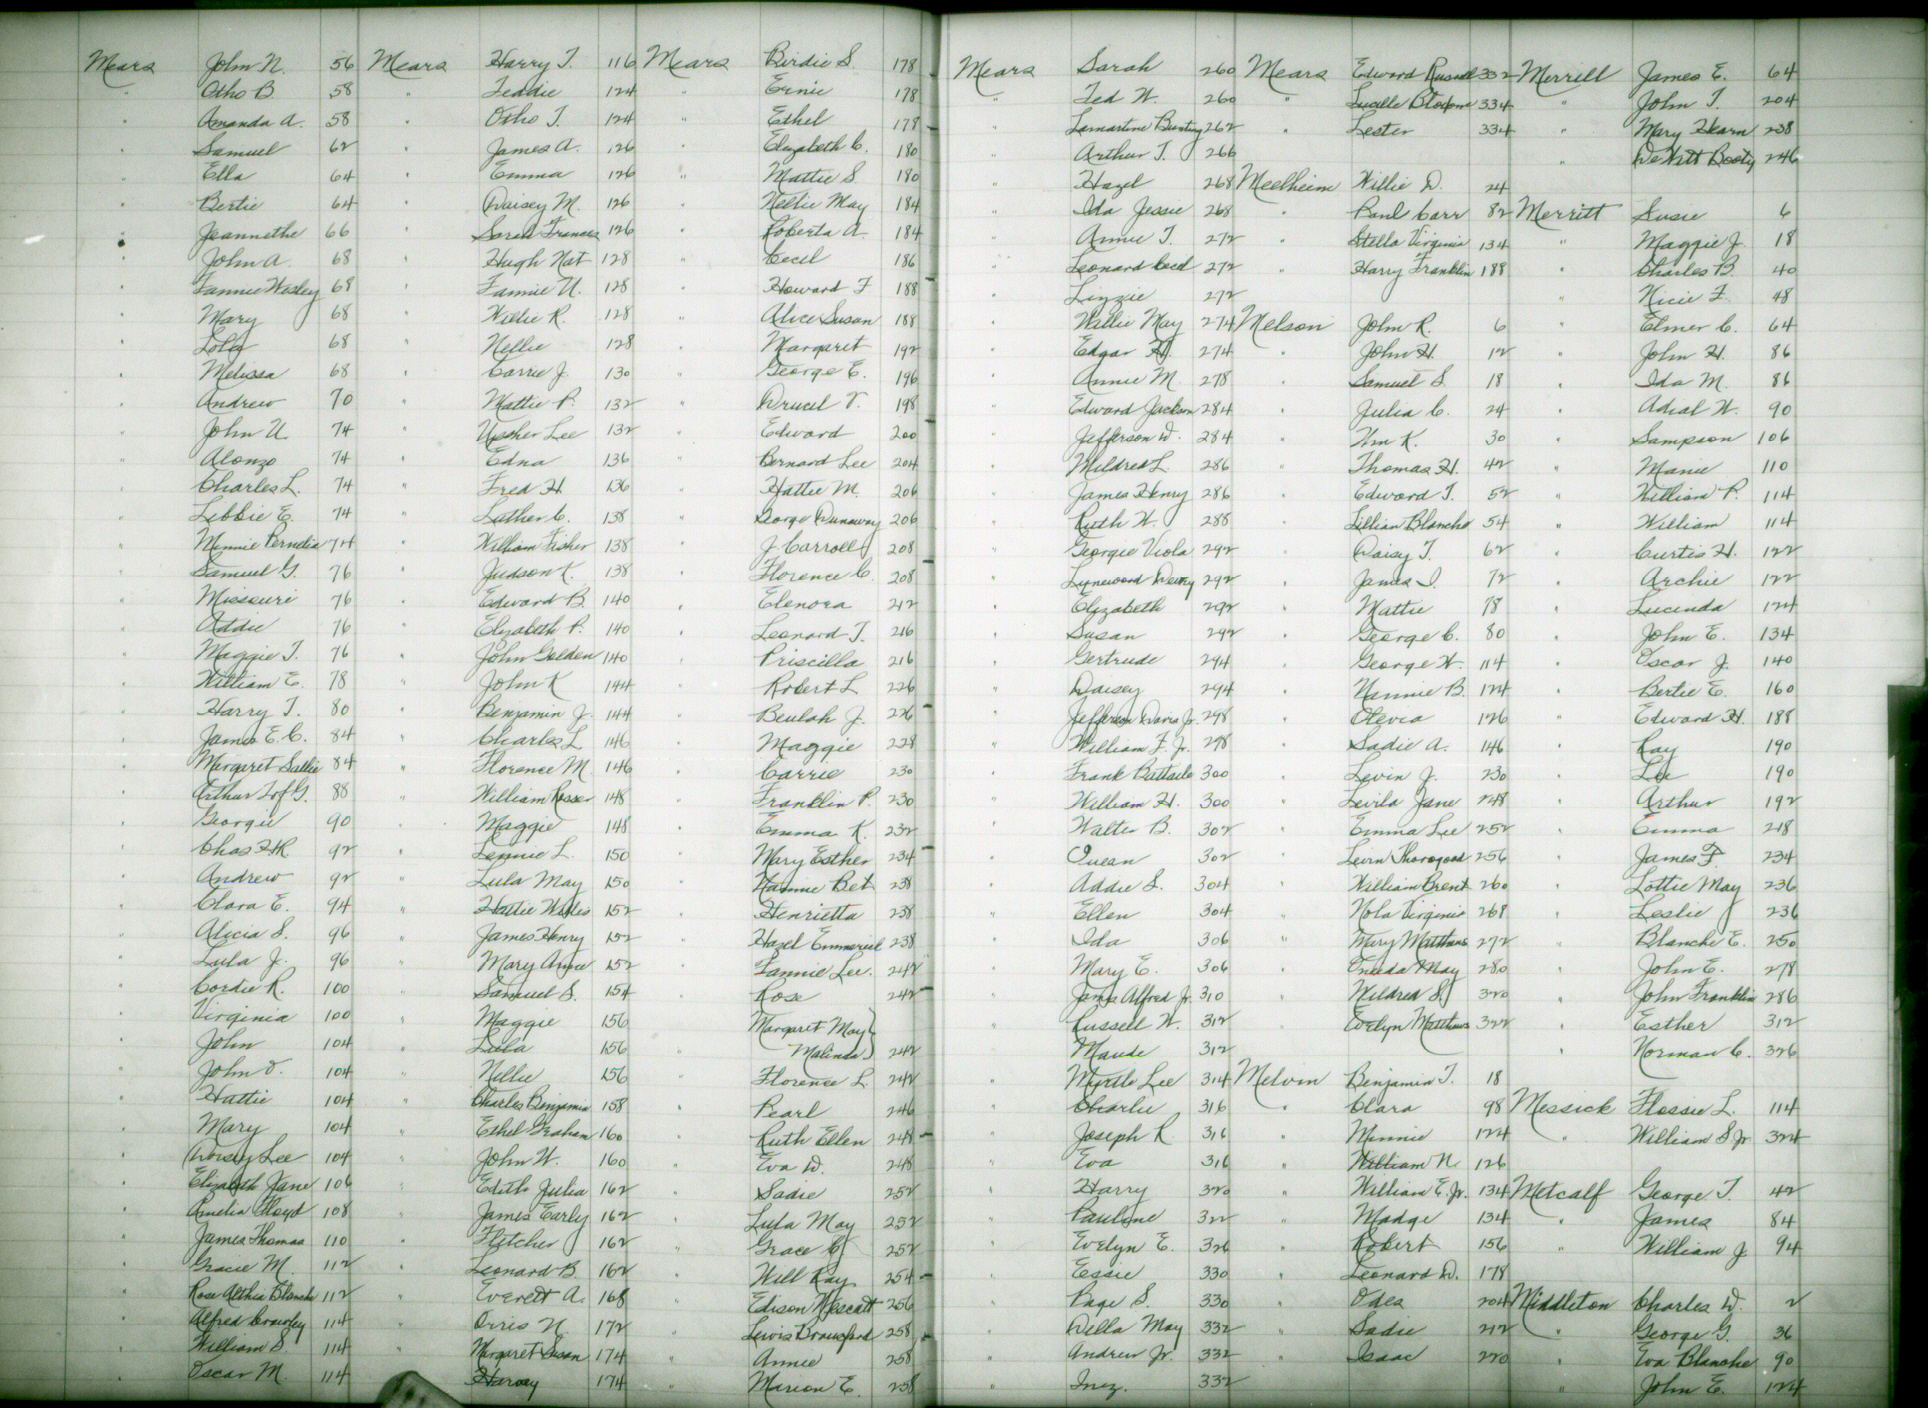 Mears John N. 56
" Otho B. 58
" Amanda A. 58
" Samuel 62
" Ella 64
" Bertie 64
" Jeannethe 66
" John A. 68
" Fannie Wesley 68
" Mary 68
" Lola 68
" Melissa 68
" Andrew 70
" John U. 74
" Alonzo 74
" Charles L. 74
" Libbie E. 74
" Minnie Pernetia 74
" Samuel G. 76
" Missouri 76
" Addie 76
" Maggie T. 76
" William E. 78
" Harry T. 80
" James E. C. 84
" Margaret Sallie 84
" Arthur G. 88
" Georgie 90
" Chas H R 92
" Andrew 92
" Clara E. 94
" Alicia S. 96
" Lula J. 96
" Cordie R. 100
" Virginia 100
" John 104
" John O. 104
" Hattie 104
" Mary 104
" Dorsey Lee 104
" Elizabeth Jane 106
" Amelia Floyd 108
" James Thomas 110
" Gracie M. 112
" Rose Althea Blanche 112
" Alfred Crowley 114
" William S. 114
" Oscar M. 114
Mears Harry T. 116
" Teddie 124
" Otho T. 124
" James A. 126
" Emma 126
" Daisey M. 126
" Sarah Frances 126
" Hugh Nat 128
" Fannie U. 128
" Willie R. 128
" Nellie 128
" Carrie J. 130
" Mattie P. 132
" Upsher Lee 132
" Edna 136
" Fred H. 136
" Luther C. 138
" William Fisher 138
" Judson K. 138
" Edward B. 140
" Elizabeth P. 140
" John Golden 140
" John K 144
" Benjamin J. 144
" Charles L 146
" Florence M. 146
" William Rosser 148
" Maggie 148
" Lennie L. 150
" Lula May 150
" Hattie Wales 152
" James Henry 152
" Mary Anne 152
" Samuel S. 154
" Maggie 156
" Lula 156
" Nellie 156
" Charles Benjamin 158
" Ethel Graham 160
" John W. 160
" Edith Julia 162
" James Early 162
" Fletcher 162
" Leonard B. 162
" Everett A. 168
" Orris N. 172
" Margaret Susan 174
" Harvey 174
Mears Birdie S. 178
" Ernie 178
" Ethel 178
" Elizabeth C. 180
" Mattie S. 180
" Nellie May 184
" Roberta A. 184
" Cecil 186
" Howard F 188
" Alice Susan 188
" Margaret 192
" George E. 196
" Drucil V. 198
" Edward 200
" Bernard Lee 204
" Hattie M. 206
" George Dunaway 206
" J Carroll 208
" Florence C. 208
" Elenora 212
" Leonard T. 216
" Priscilla 216
" Robert L 226
" Beulah J. 226
" Maggie 228
" Carrie 230
" Franklin P. 230
" Emma K. 232
" Mary Esther 234
" Nannie Bet 238
" Henrietta 238
" Hazel 238
" Fannie Lee. 242
" Rose 242
" Margaret May }
Malinda } 242
" Florence L. 242
" Pearl 246
" Ruth Ellen 248
" Eva D. 248
" Sadie 252
" Lula May 252
" Grace C. 252
" Will Ray 254
" Edison 256
" Lewis Bransford 258
" Annie 258
" Marion E. 258
Mears Sarah 260
" Ted W. 260
" Lamartine Bunting 262
" Arthur T. 266
" Hazel 268
" Ida Jessie 268
" Annie T. 272
" Leonard Cecil 272
" Lizzie 272
" Willie May 274
" Edgar H. 274
" Annie M 278
" Edward Jackson 284
" Jefferson D. 284
" Mildred L. 286
" James Henry 286
" Ruth W. 288
" Georgie Viola 292
" Lynewood Dewey 292
" Elizabeth 292
" Susan 292
" Gertrude 294
" Daisey 294
" Jefferson Davis Jr. 298
" William F. Jr. 298
" Frank Battaile 300
" William H. 300
" Walter B. 302
" Quean 302
" Addie S. 304
" Ellen 304
" Ida 306
" Mary E. 306
" James Alfred Jr. 310
" Russell W. 312
" Maude 312
" Myrtle Lee 314
" Charlie 316
" Joseph R 316
" Eva 316
" Harry 320
" Pauline 322
" Evelyn E. 326
" Essie 330
" Page S. 330
" Della May 332
" Andrew Jr. 332
" Inez. 332
Mears Edward Russell 332
" Lucille 334
" Lester 334
Meelheim Willie D. 24
" Paul Carr 82
" Stella Virginia 134
" Harry Franklin 188
Melson John R. 6
" John H. 12
" Samuel S. 18
" Julia C. 24
" Wm K. 30
" Thomas H. 42
" Edward T. 52
" Lillian Blanche 54
" Daisy T. 62
" James I. 72
" Mattie 78
" George C. 80
" George W. 114
" Nannie B. 124
" Olevia 126
" Sadie A. 146
" Levin J. 230
" Levila Jane 248
" Emma Lee 252
" Levin Thorogood 256
" William Brent 260
" Nola Virginia 268
" Mary Matthews 272
" Oneida May 280
" Mildred S. 320
" Evelyn Matthews 322
Melvin Benjamin T. 18
" Clara 98
" Minnie 124
" William N 126
" William E. Jr. 134
" Madge 134
" Robert 156
" Leonard D. 178
" Odea 204
" Sadie 212
" Isaac 220
Merrill James E. 64
" John T. 204
" Mary Hearn 238
" DeWitt Booty 246
Merritt Susie 6
" Maggie J. 18
" Charles B. 40
" Nicie F. 48
" Elmer C. 64
" John H. 86
" Ida M. 86
" Adial W. 90
" Sampson 106
" Manie 110
" William P. 114
" William 114
" Curtis H. 122
" Archie 122
" Lucinda 124
" John E. 134
" Oscar J. 140
" Bertie E. 160
" Edward H. 188
" Ray 190
" Lee 190
" Arthur 192
" Emma 218
" James F. 234
" Lottie May 236
" Leslie 236
" Blanche E. 250
" John E. 278
" John Franklin 286
" Esther 312
" Norman C. 326
Messick Flossie L. 114
" William S Jr 324
Metcalf George T. 42
" James 84
" William J. 94
Middleton Charles W. 2
" George G. 36
" Eva Blanche 90
" John E. 124